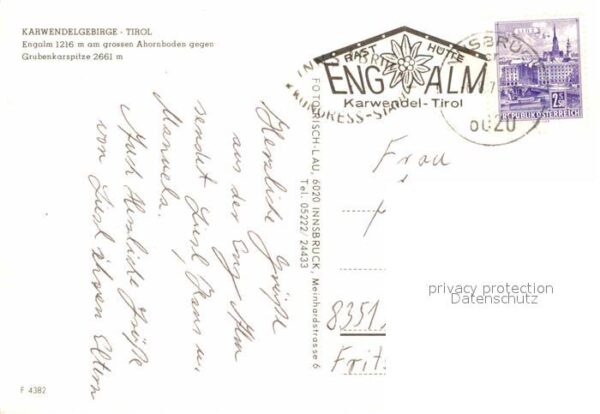 KARWENDELGEBIRGE - TIROL
Engalm 1216 m am grossen Ahornboden gegen
Grubenkarspitze 2661 m
Herzliche Grüße
aus der Eng Alm
sendet Liesl, Hans u.
Manuela.
Auch Herzliche Grüße
von Liesl ihren Eltern
FOTO RISCH-LAU, 6020 INNSBRUCK, Meinhardstrasse 6
Tel. 05222/24433
RAST HÜTTE
ENG ALM
Karwendel-Tirol
INNSBRUCK
KONGRESS-STADT
6020
2.50
REPUBLIK ÖSTERREICH
Frau
8351
Frits
privacy protection
Datenschutz
F 4382